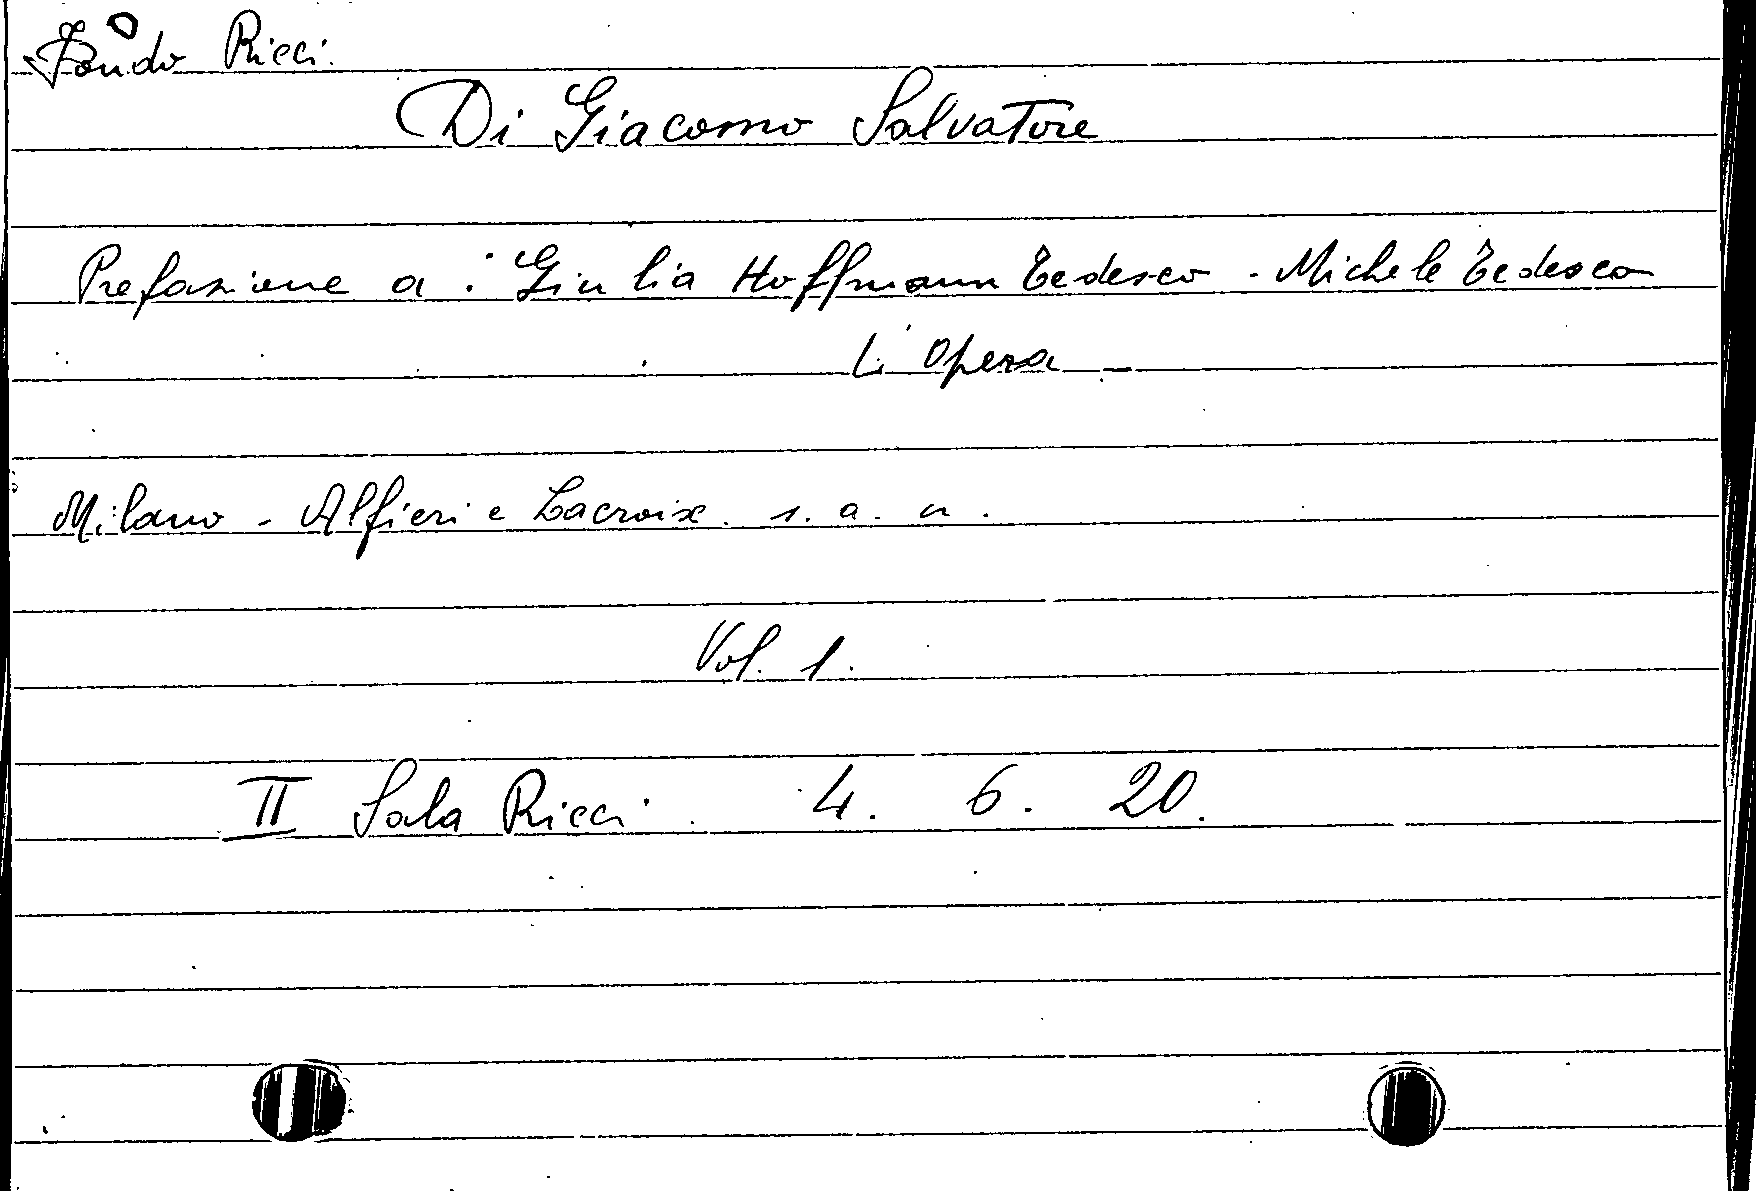 Fondo Ricci.
Di Giacomo Salvatore
Prefazione a: Giulia Hoffmann Tedesco - Michele Tedesco
L'Opera -
Milano - Alfieri e Lacroix. s. a. n.
Vol. 1.
II Sala Ricci. 4. 6. 20.